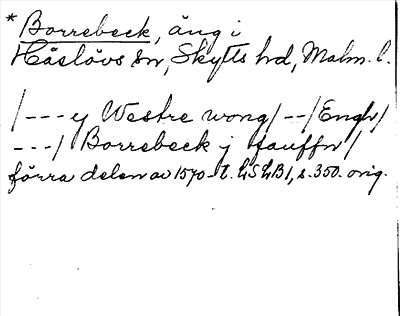 * Borrebeck, äng i
Håslövs sn, Skytts hd, Malm. l.
/--- y Westre wong/--/Engh/
---/ Borrebeck j fauffn/
förra delen av 1570-t. LSLB1, s. 350. orig.